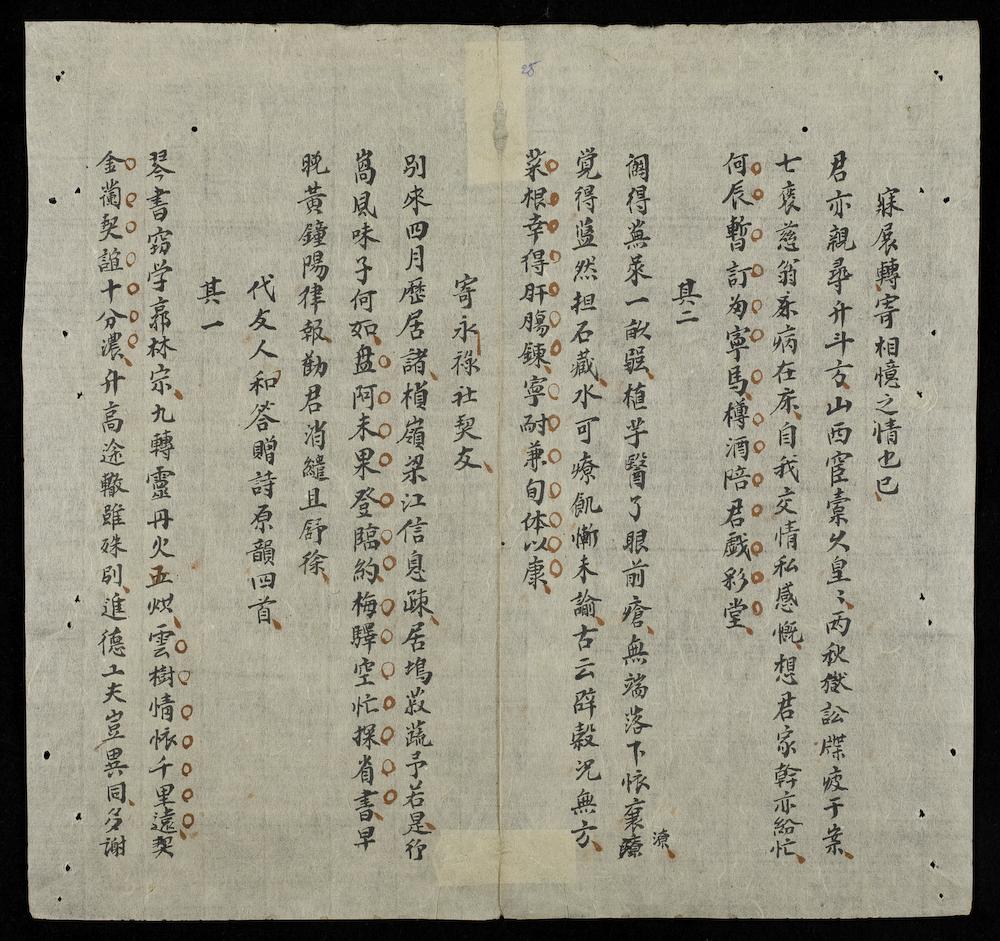 25
寐展轉寄相憶之情也已
君亦親尋升斗方山西宦橐久皇〻丙秋獄訟牒疲于案
七袠慈翁亲病在床自我交情私感慨想君家幹亦紛忙
何辰暫訂匋寧馬樽酒陪君戲彩堂
其二
阙得葁菉一畝强植芋醫了眼前瘡無端落下悵裏療
療
覚得盐然担石藏水可療飢慚未諭古云辟穀况無方
菜根幸得肝腸鍊寧耐兼旬体以康
寄永祿社契友
别來四月歷居諸楨嶺梁江信息疎居塢蔌蔬予若是行
嵩風味子何如盘阿未果登臨約梅驛空忙探省書早
晩黃鐘陽律報勸君消繾且舒徐
代友人和答贈詩原韻四首
其一
琴書窃学郭林宗九轉靈丹火五烘雲樹情悵千里遠契
金蘭契誼十分濃升高途轍雖殊别進德工夫豈異同多謝